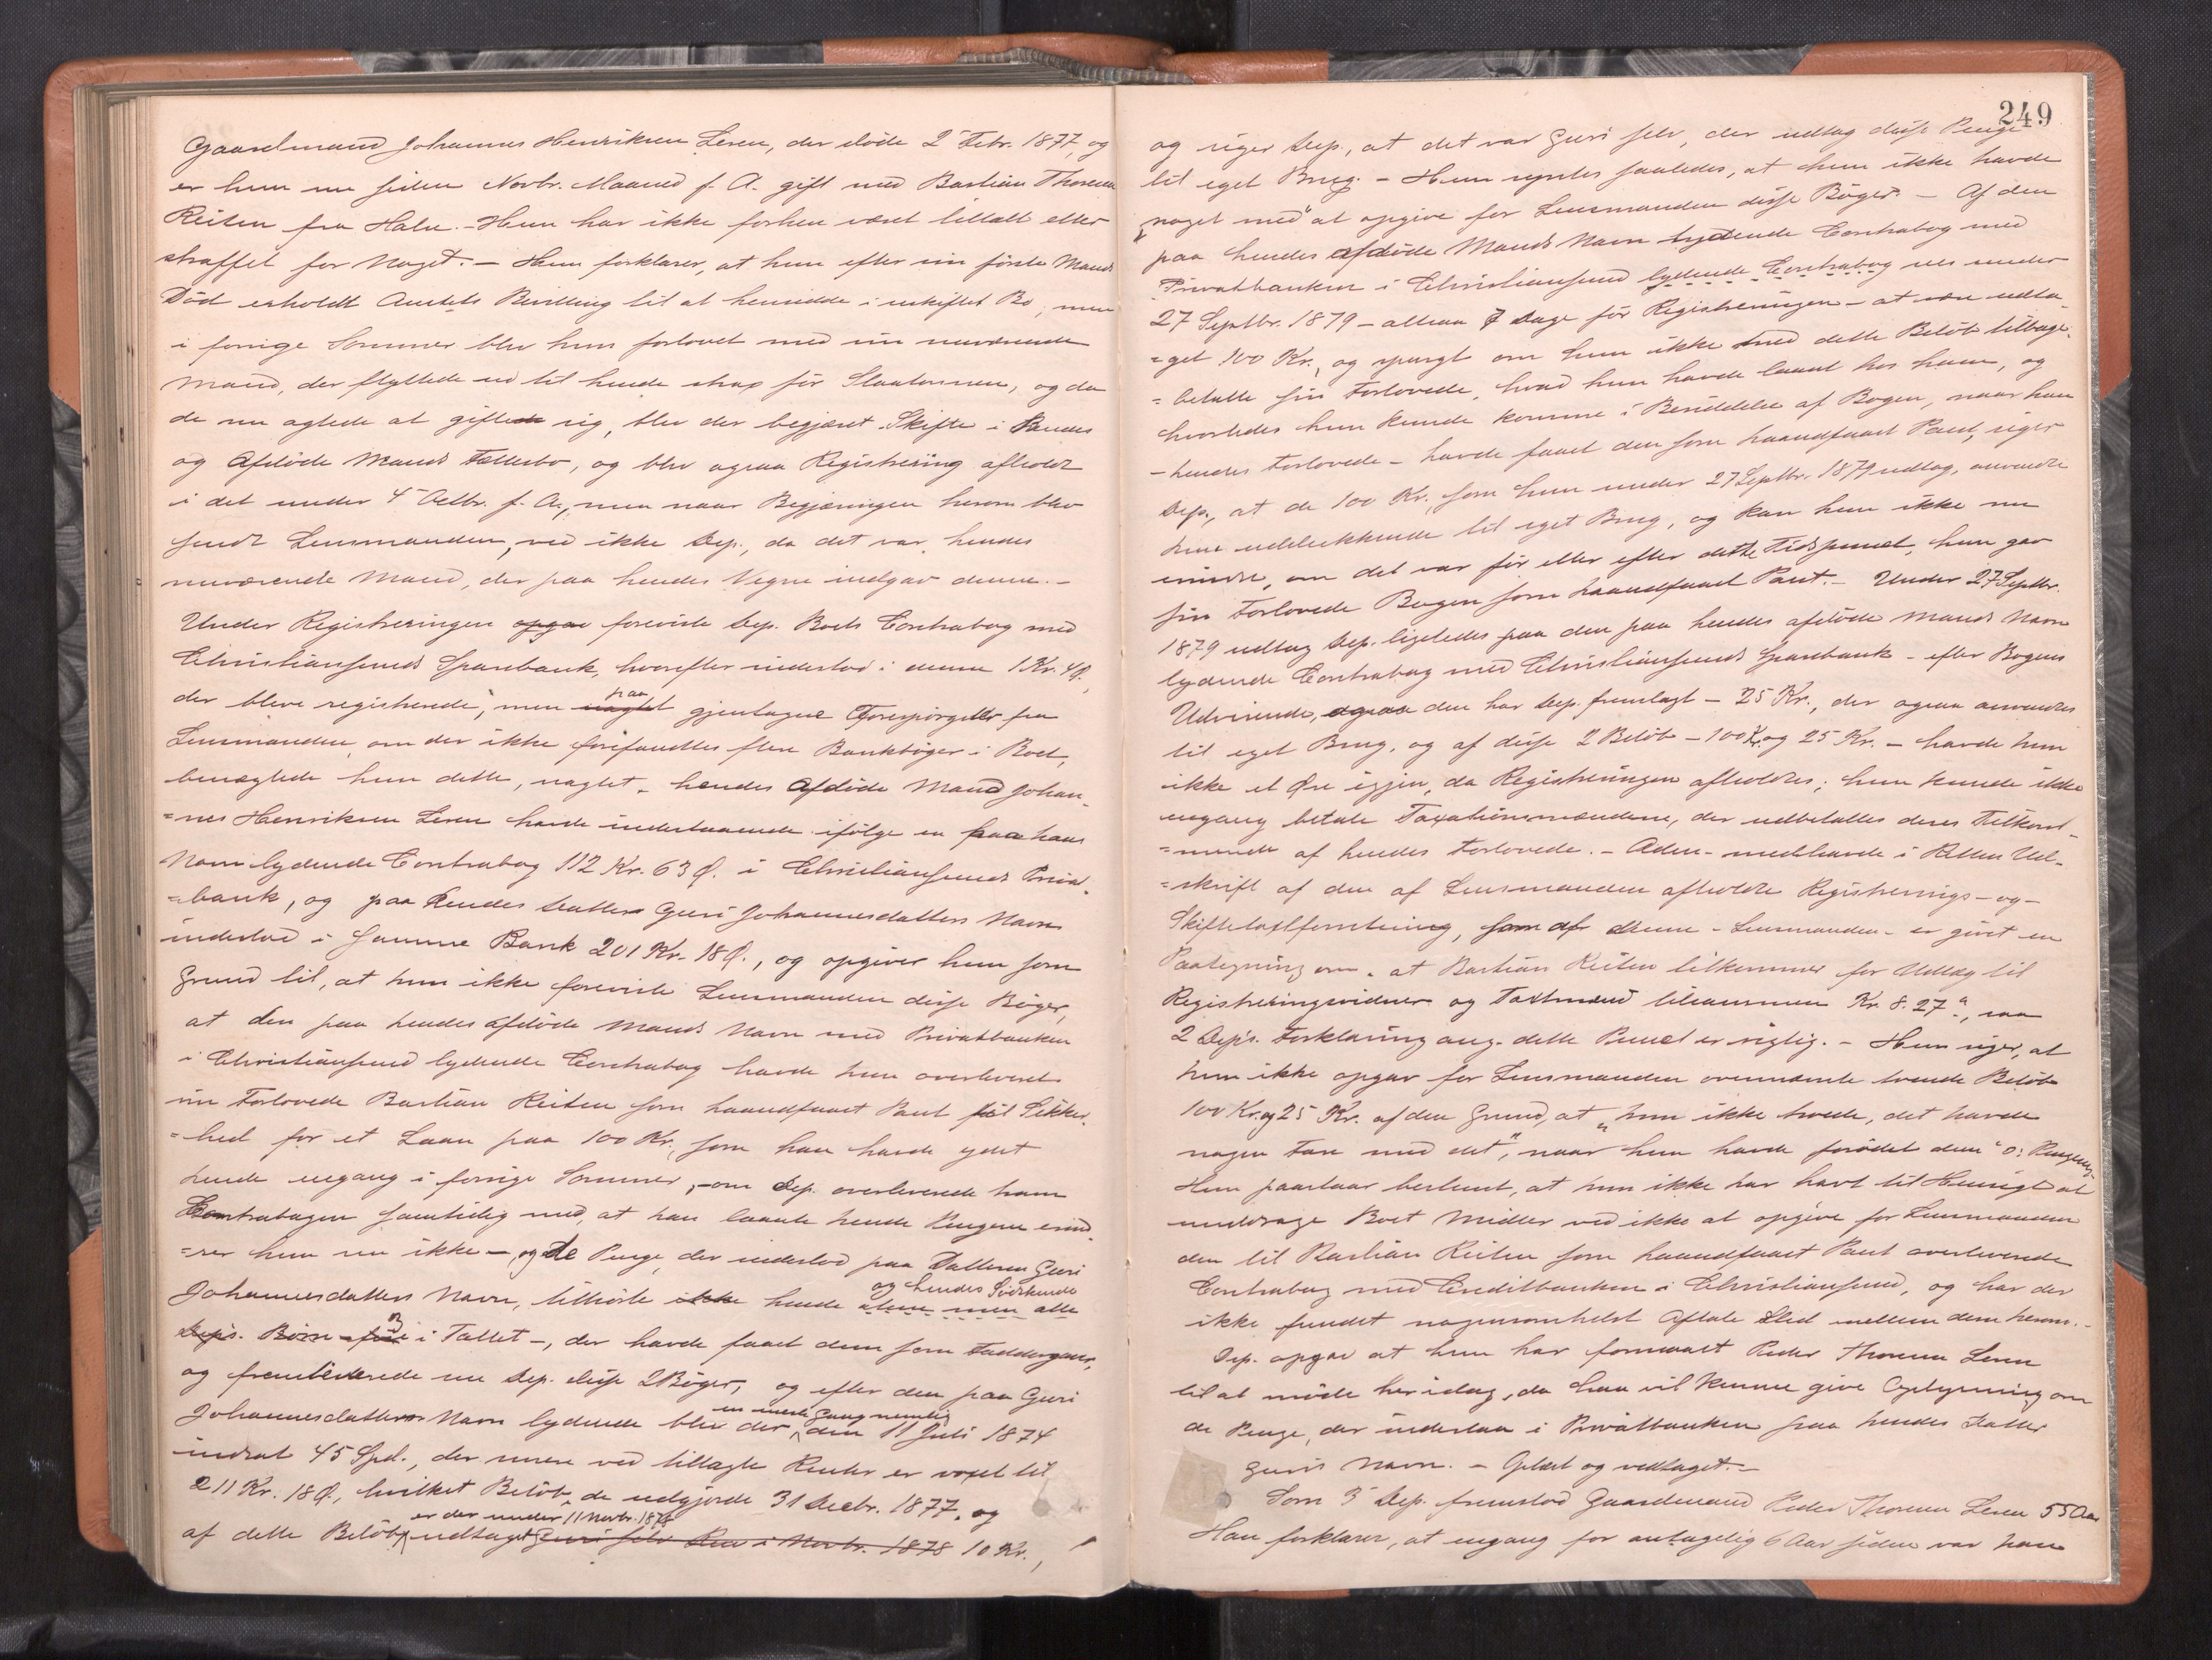 Gaardmand Johannes Henriksen Leren, der döde 2 Febr. 1877, og
er hun nu siden Novbr. Maaned f. A. gift med Bastian Thoresen
Reiten fra Halse. - Hun har ikke forhen været tiltalt eller
straffet for Noget. - Hun forklarer, at hun efter sin förste Mands
Död erholdt Amtets Bevilling til at hensidde i uskiftet Bo, men
i forrige Sommer blev hun forlovet med sin nuværende
Mand, der flyttede ned til hende strax för Slaatonnen, og da
de nu agtede at gifte sig, blev der begjæret Skifte i Hendes
og Afdöde Mands Fællesbo, og blev ogsaa Registrering afholdt
i det under 4 Octbr. f. A., men naar Begjæringen herom blev
sendt Lensmanden, ved ikke Dep., da det var hendes
nuværende Mand, der paa hendes Vegne indgav denne. -
Under Registreringen opgav foreviste Dep. Boets Contrabog med
Christianssunds Sparebank, hvorefter indestod i denne 1 Kr. 4 Ö.,
der bleve registrerede, men uagtet paa gjentagne Forespörgsler fra
Lensmanden, om der ikke forefandtes flere Bankböger i Boet,
benægtede hun dette, uagtet hendes Afdöde Mand Johan-
=nes Henriksen Leren havde indestaaende ifölge en paa hans
Navn lydende Contrabog 112 Kr. 63 Ö. i Christianssunds Privat-
=bank, og paa Hendes Datters Guri Johannesdatters Navn
indestod i Samme Bank 201 Kr. 18 Ö., og opgiver hun som
Grund til, at hun ikke foreviste Lensmanden disse Böger,
at den paa hendes afdöde Mands Navn med Privatbanken
i Christianssund lydende Contrabog havde hun overleveret
sin Forlovede Bastian Reiten som haandfaaet Pant til Sikker-
=hed for et Laan paa 100 Kr., som han havde ydet
hende engang i forrige Sommer, - om Dep. overleverede ham
Contrabogen samtidig med, at han laante hende Pengene erind-
=rer hun nu ikke -, og de Penge, der indestod paa Datteren Guri
Johannesdatters Navn, tilhörte ikke hende alene men alle og hendes Södskende
Dep's. Börn - fire 3 i Tallet -, der havde faaet dem som Faddergaver,
og fremleverede nu Dep. disse 2 Böger, og efter den paa Guri
Johannesdatters Navn lydende blev der en eneste Gang nemlig den 11 Juli 1874
indsat 45 Spd., der senere ved tillagte Renter er voxet til
211 Kr. 18 Ö., hvilket Belöb de udgjorde 31 Decbr. 1877, og
af dette Belöb er der under 11 Novbr. 1878 udtaget Guri selv den i Novbr. 1878 10 Kr.,
249
og siger Dep., at det var Guri selv, der udtog disse Penge
til eget Brug. - Hun syntes saaledes, at hun ikke havde
noget med" at opgive for Lensmanden disse Böger. - Af den
paa hendes afdöde Mands Navn lydende Contrabog med
Privatbanken i Christianssund lydende Contrabog sees under
27 Septbr. 1879 - altsaa 7 Dage för Registreringen - at være udta-
=get 100 Kr., og spurgt om hun ikke med dette Belöb tilbage-
=betalte sin Forlovede, hvad hun havde laant hos ham, og
hvorledes hun kunde komme i Besiddelse af Bogen, naar han
- hendes Forlovede - havde faaet den som haandfaaet Pant, siger
Dep., at de 100 Kr., som hun under 27 Septbr. 1879 udtog, anvendte
hun udelukkende til eget Brug, og kan hun ikke nu
erindre, om det var för eller efter dette Tidspunct, hun gav
sin Forlovede Bogen som haandfaaet Pant. - Under 27 Septbr.
1879 udtog Dep. ligeledes paa den paa hendes afdöde Mands Navn
lydende Contrabog med Christianssunds Sparebank - efter Bogens
Udvisende, ogsaa den har Dep. fremlagt - 25 Kr., der ogsaa anvendtes
til eget Brug, og af disse 2 Belöb - 100 Kr. og 25 Kr. - havde hun
ikke et Öre igjen, da Registreringen afholdtes; hun kunde ikke
engang betale Taxationsmændene, der udbetaltes deres Tilkom-
=mende af hendes Forlovede. - Aden. medhavde i Retten Ud-
=skrift af den af Lensmanden afholdte Registrerings- og
Skiftetaxtforretning, som af denne - Lensmanden - er givet en
Paategning om, at Bastian Reiten tilkommer for Udlæg til
Registreringsvidner og Taxtmænd tilsammen Kr. 8. 27, saa
2 Dep's. Forklaring ang. dette Punct er rigtig. - Hun siger, at
hun ikke opgav for Lensmanden ovennævnte tvende Belöb
100 Kr. og 25 Kr. af den Grund, at "hun ikke troede, det havde
nogen Fare med det", naar hun havde forödet dem" o: Pengene.
Hun paastaar bestemt, at hun ikke har havt til Hensigt at
unddrage Boet Midler ved ikke at opgive for Lensmanden
den til Bastian Reiten som haandfaaet Pant overleverede
Contrabog med Creditbanken i Christianssund, og har der
ikke fundet nogensomhelst Aftale Sted mellem dem herom. -
Dep. opgav at hun har formaaet Peder Thoresen Leren
til at möde her idag, da han vil kunne give Oplysning om
de Penge, der indestaa i Privatbanken paa hendes Datter
Guris Navn. - Oplæst og vedtaget. -
Som 3 Dep. fremstod Gaardmand Peder Thoresen Leren 55 Aar
Han forklarer, at engang for antagelig 6 Aar siden var han